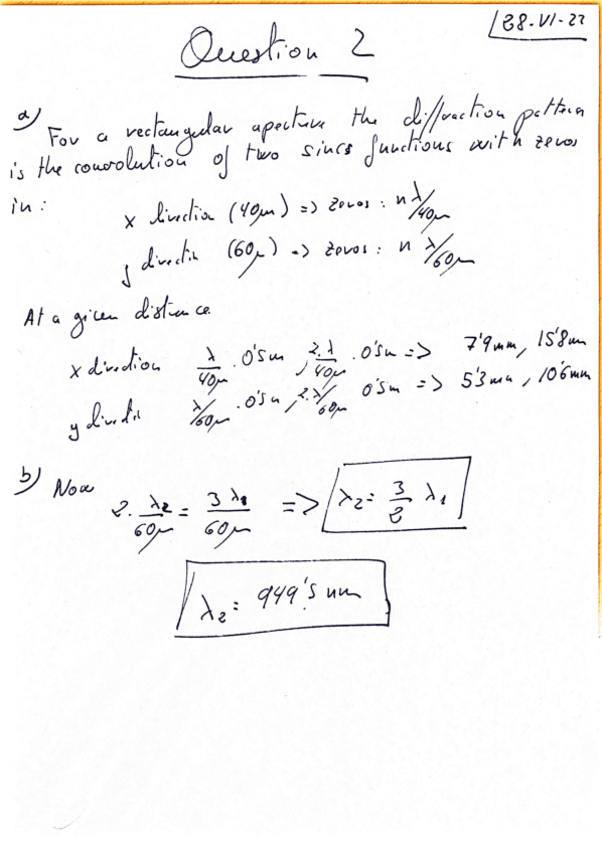 28-VI-22
Question 2
a) For a rectangular aperture the diffraction pattern
is the convolution of two sincs functions with zeros
in:
x direction (40μm) => zeros: n λ/40μm
y directin (60μ) => zeros: n λ/60μm
At a given distance
x direction λ/40μm . 0'5m , 2.λ/40μm . 0'5m => 7'9mm, 15'8mm
y directi λ/60μm . 0'5m , 2.λ/60μm 0'5m => 5'3mm, 10'6mm
b) Now
2. λ2/60μ = 3 λ1/60μ => λ2 = 3/2 λ1
λ2 = 949'5 nm